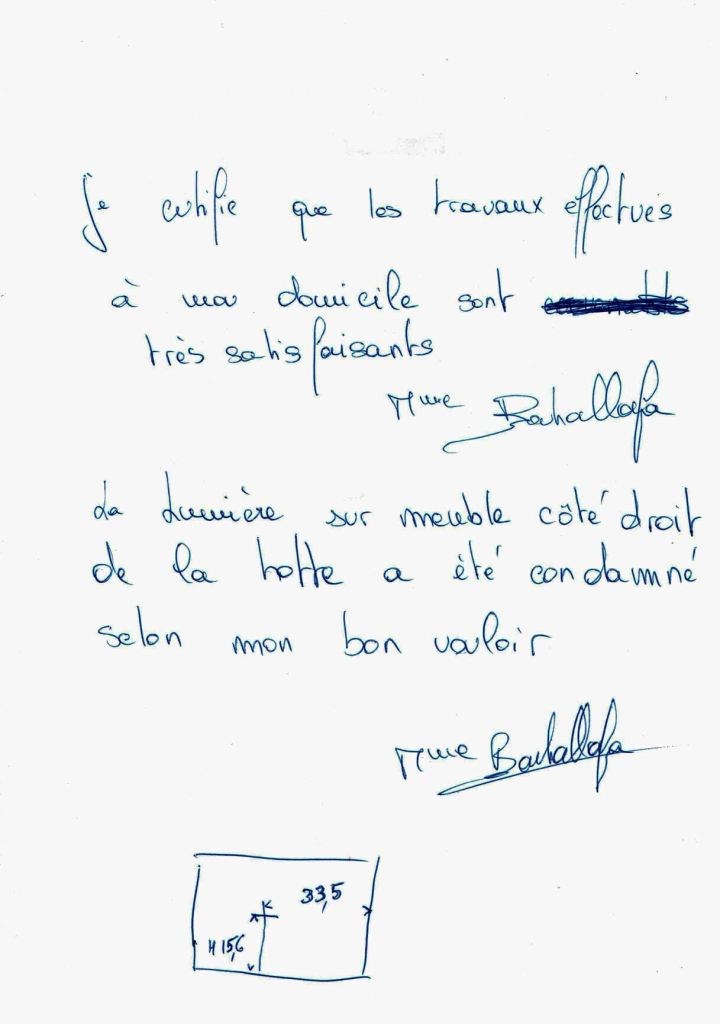 Je certifie que les travaux effectués
à ma domicile sont
très satisfaisants
Mme Bahallafa
La Lumière sur meuble côté droit
de la hotte a été condamné
selon mon bon vouloir
Mme Bahallafa
33,5
H 15,6